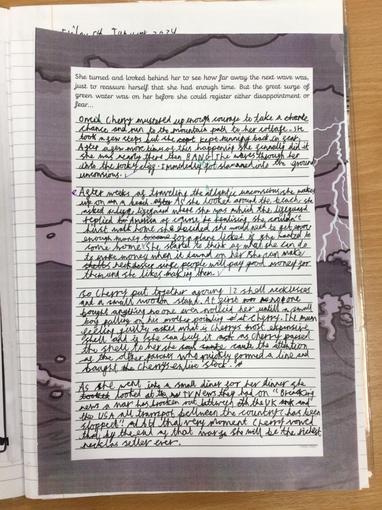 Friday 5th January 2024
She turned and looked behind her to see how far away the next wave was,
just to reassure herself that she had enough time. But the great surge of
green water was on her before she could register either disappointment or
fear...
Once Cherry mustered up enough courage to take a
chance and run to the mountain path to her cottage. She
took a few steps but she kept running back in fear.
After a few more times of this happening she finally did it
she was nearly there then BANG! The waves through her
into the rocky edge. Immediatly got slammed into the ground
After weeks of traveling the atlantic unconscious she wakes
up on a beach. As she looked around the beach she
asked a lifeguard where she was which the lifeguard
replied to America of course, he realising she couldn't
just walk home she decided she would need to get
enough money for a plane ticket if she wanted to
come home. She started to think of what she can do
to make money when it dawned on her she can make
necklaces since people will pay good money for
them and she likes making them.
So Cherry put together 12 shell necklaces
and a small wooden stand. At first no one
bought anything no one even noticed her untill a small
boy pulling on his mother pointing at Cherry. The mum
feeling guilty asked what is Cherrys most expensive
shell and if she can buy it as Cherry passed
the shell to her she caught the attention
of the other parents who quickly formed a line and
bought the Cherrys entire stock.
As she went into a small diner for her dinner she
looked at the TV News they had on "Breaking
news a war has broken out between the UK and
the USA all transport between the countrys has been
stopped" at that very moment Cherry vowed
that by the end of that war she will be the richest
necklace seller ever.